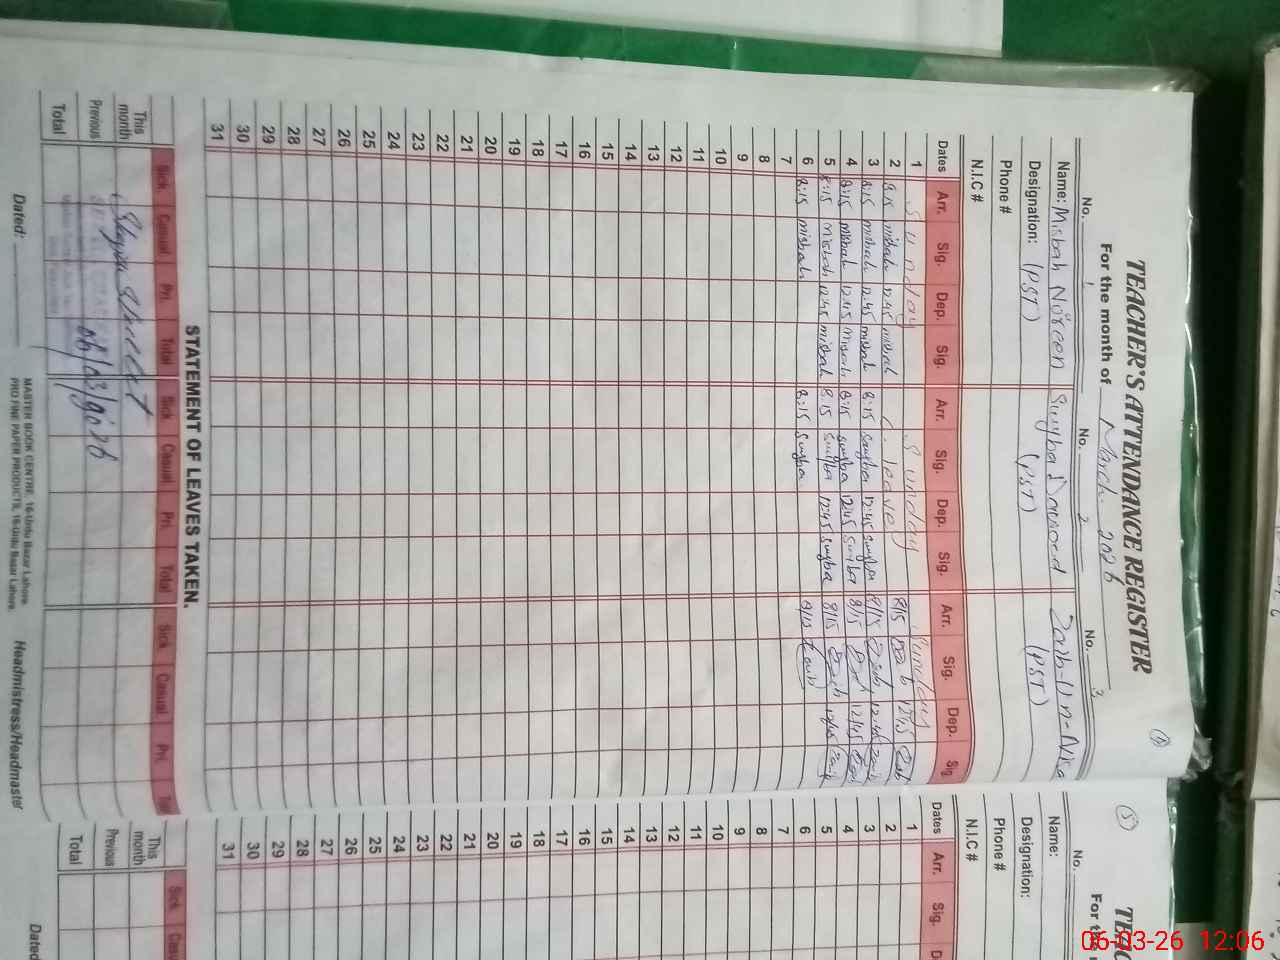 TEACHER'S ATTENDANCE REGISTER
For the month of March 2026
No. 1 No. 2 No. 3
Name: Misbah Noreen Sumbal Dawood Zaib-Un-Nisa
Designation: (PST) (PST) (PST)
Phone #
N.I.C #
Dates Arr. Sig. Dep. Sig. Arr. Sig. Dep. Sig. Arr. Sig. Dep. Sig.
1 Sunday Sunday Sunday
2 8:15 misbah 12:45 misbah C. leave 8/15
3 8:15 misbah 12:45 misbah 8:15 12:45 8/15 12:45
4 8:15 misbah 12:45 misbah 8:15 12:45 8/15 12/45
5 8:15 misbah 12:45 misbah 8:15 12:45 8/15 12/45
6 8:15 misbah 8:15 8/15
7
8
9
10
11
12
13
14
15
16
17
18
19
20
21
22
23
24
25
26
27
28
29
30
31
STATEMENT OF LEAVES TAKEN.
Sick Casual Pri. Total Sick Casual Pri. Total Sick Casual Pri.
This month
Previous
Total
06/03/2026
Dated:
MASTER BOOK CENTRE, 16-Urdu Bazar Lahore.
PRO FINE PAPER PRODUCTS, 16-Urdu Bazar Lahore.
Headmistress/Headmaster
5
TEAC
For th
No.
Name:
Designation:
Phone #
N.I.C #
Dates Arr. Sig.
1
2
3
4
5
6
7
8
9
10
11
12
13
14
15
16
17
18
19
20
21
22
23
24
25
26
27
28
29
30
31
Sick
This month
Previous
Total
Dated
06-03-26 12:06